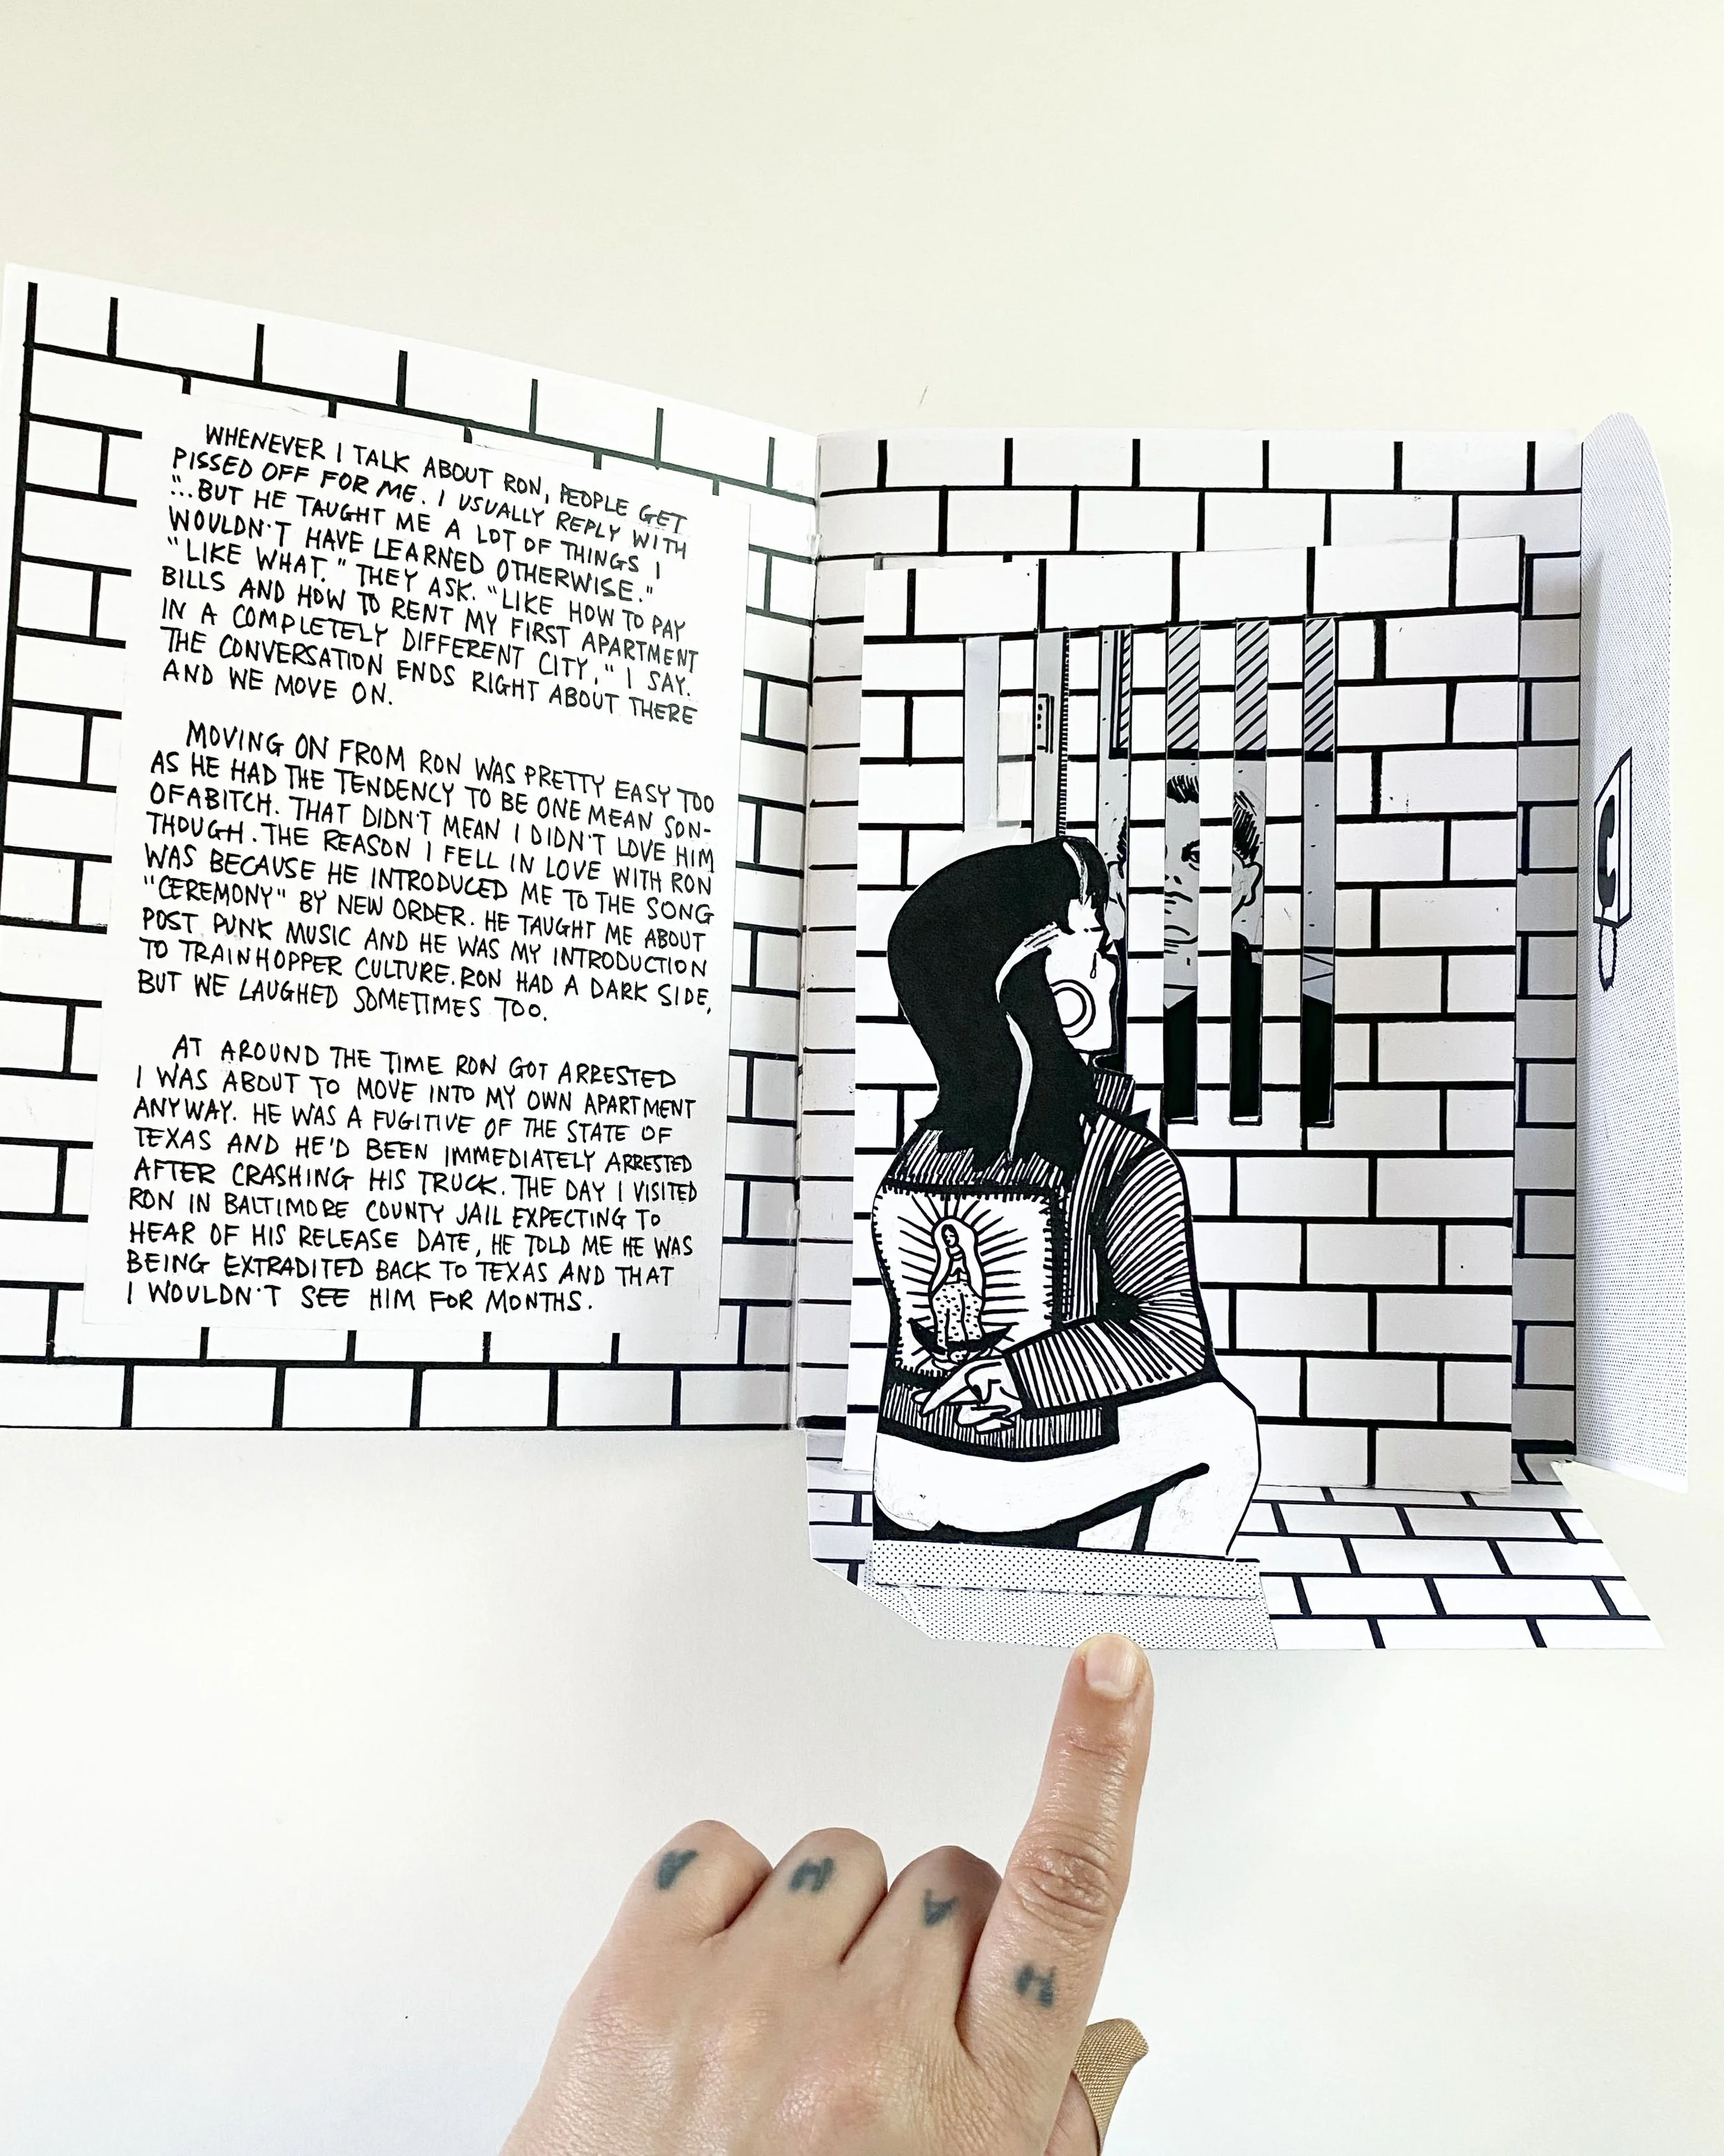 WHENEVER I TALK ABOUT RON, PEOPLE GET
PISSED OFF FOR ME. I USUALLY REPLY WITH
"...BUT HE TAUGHT ME A LOT OF THINGS I
WOULDN'T HAVE LEARNED OTHERWISE."
"LIKE WHAT." THEY ASK. "LIKE HOW TO PAY
BILLS AND HOW TO RENT MY FIRST APARTMENT
IN A COMPLETELY DIFFERENT CITY," I SAY.
THE CONVERSATION ENDS RIGHT ABOUT THERE
AND WE MOVE ON.
MOVING ON FROM RON WAS PRETTY EASY TOO
AS HE HAD THE TENDENCY TO BE ONE MEAN SON-
OFABITCH. THAT DIDN'T MEAN I DIDN'T LOVE HIM
THOUGH. THE REASON I FELL IN LOVE WITH RON
WAS BECAUSE HE INTRODUCED ME TO THE SONG
"CEREMONY" BY NEW ORDER. HE TAUGHT ME ABOUT
POST PUNK MUSIC AND HE WAS MY INTRODUCTION
TO TRAINHOPPER CULTURE. RON HAD A DARK SIDE,
BUT WE LAUGHED SOMETIMES TOO.
AT AROUND THE TIME RON GOT ARRESTED
I WAS ABOUT TO MOVE INTO MY OWN APARTMENT
ANYWAY. HE WAS A FUGITIVE OF THE STATE OF
TEXAS AND HE'D BEEN IMMEDIATELY ARRESTED
AFTER CRASHING HIS TRUCK. THE DAY I VISITED
RON IN BALTIMORE COUNTY JAIL EXPECTING TO
HEAR OF HIS RELEASE DATE, HE TOLD ME HE WAS
BEING EXTRADITED BACK TO TEXAS AND THAT
I WOULDN'T SEE HIM FOR MONTHS.
A H A H